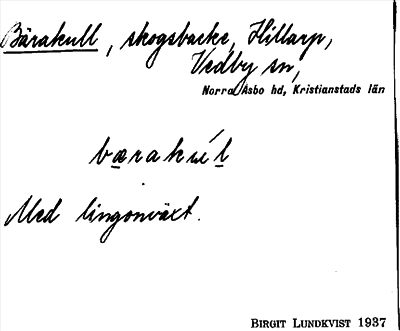 Bärakull, skogsbacke, Hillarp,
Vedby sn,
Norra Åsbo hd, Kristianstads län
bærakul
Med lingonväxt.
BIRGIT LUNDKVIST 1937